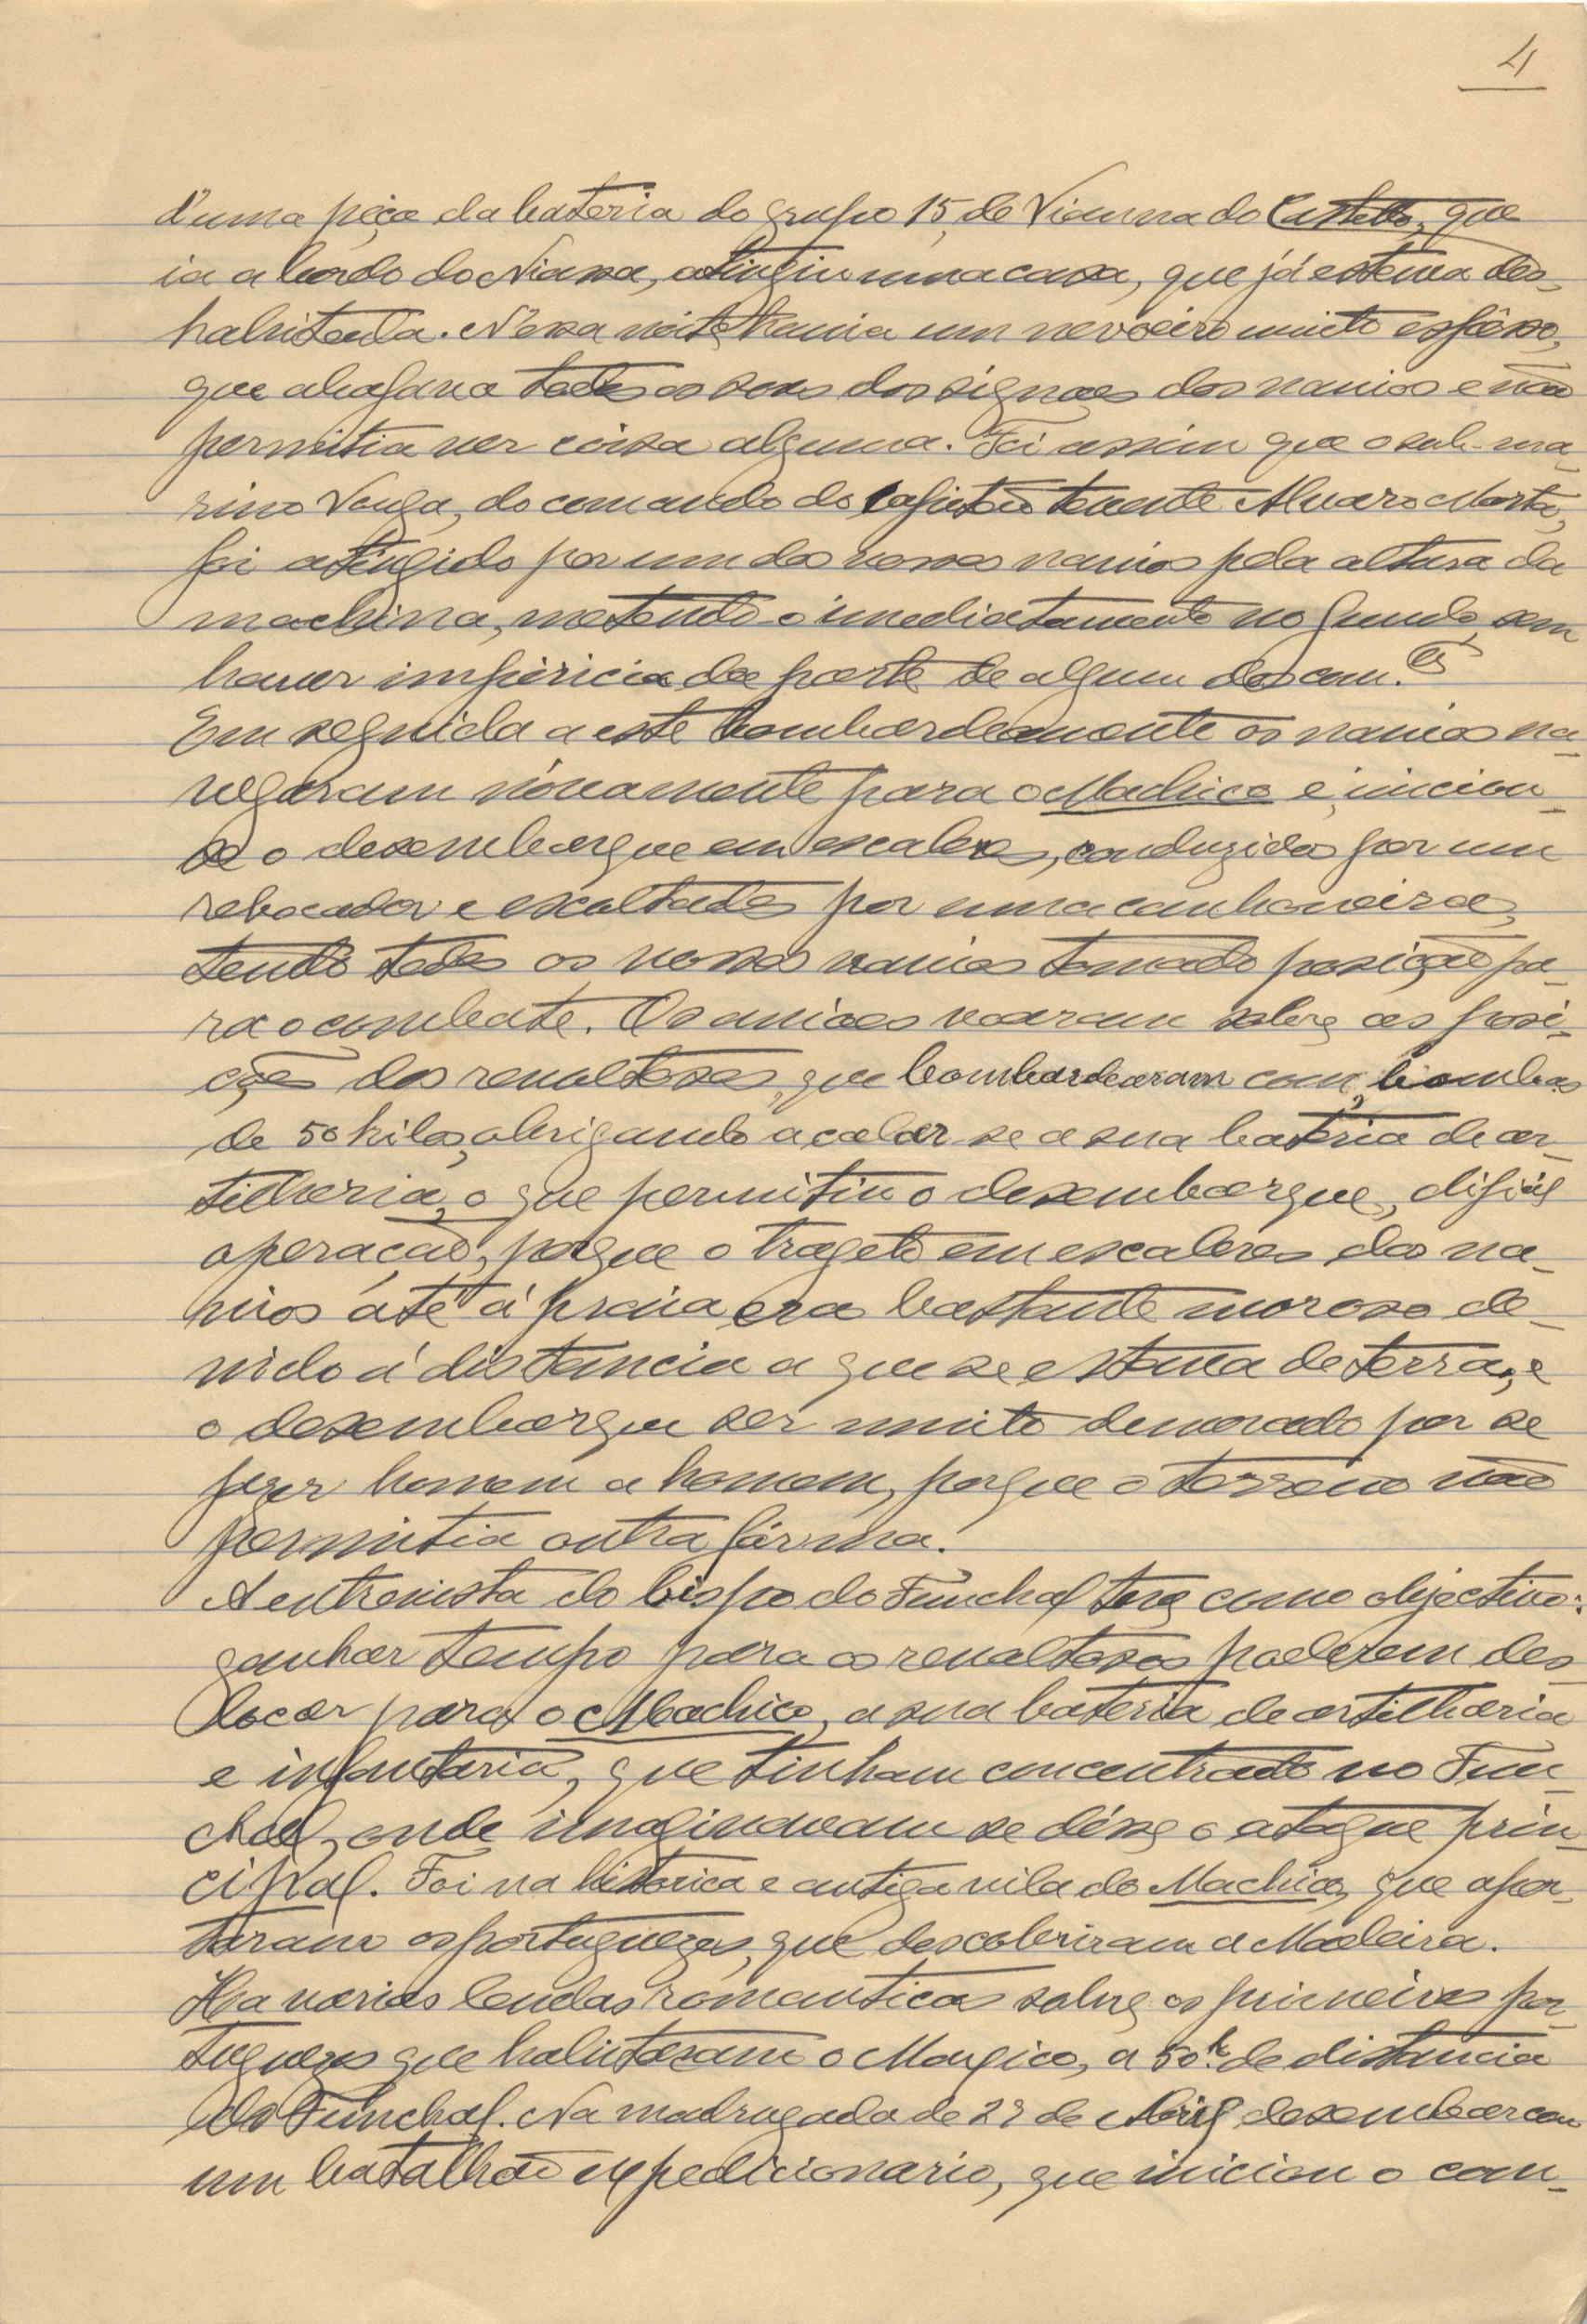 4
d'uma peça da bateria do grupo 15, de Vianna do Castello, que
ia a bordo do Niassa, atingiu uma casa, que já estava des-
habitada. Nessa noite havia um nevoeiro muito espêsso,
que abafava todos os sons dos signaes dos navios e não
permitia ver coisa alguma. Foi assim que o sub-ma-
rino Vouga, do comando do capitão tenente Alvaro Marta,
foi atingido por um dos nossos navios pela altura da
machina, metendo-o imediatamente no fundo, sem
haver impericia da parte de algum dos com.es
Em seguida a este bombardeamento os navios na-
vegaram nóvamente para o Machico e iniciou-
se o desembarque em escaleres, conduzidos por um
rebocador e escoltados por uma canhoneira,
tendo todos os nossos navios tomado posição pa-
ra o combate. Os aviões voaram sobre as posi-
ções dos revoltosos, que bombardearam com bombas
de 50 kilos, obrigando a calar-se a sua bateria de ar-
tilheria, o que permitiu o desembarque, dificil
operação, porque o trageto em escaleres dos na-
vios até á praia era bastante moroso de-
vido á distancia a que se estava de terra, e
o desembarque ser muito demorado por se
fazer homem a homem, porque o terreno não
permitia outra fórma.
A entrevista do bispo do Funchal teve como objectivo:
ganhar tempo para os revoltosos poderem des-
locar para o Machico, a sua bateria de artilharia
e infantaria, que tinham concentrado no Fun-
chal, onde imaginavam se désse o ataque prin-
cipal. Foi na historica e antiga vila do Machico, que apor-
taram os portuguezes, que descobriram a Madeira.
Ha varias lendas romanticas sobre os primeiros por-
tuguezes que habitaram o Maxico, a 50k de distancia
do Funchal. Na madrugada de 27 de Abril desembarcou
um batalhão expedicionario, que iniciou o com-